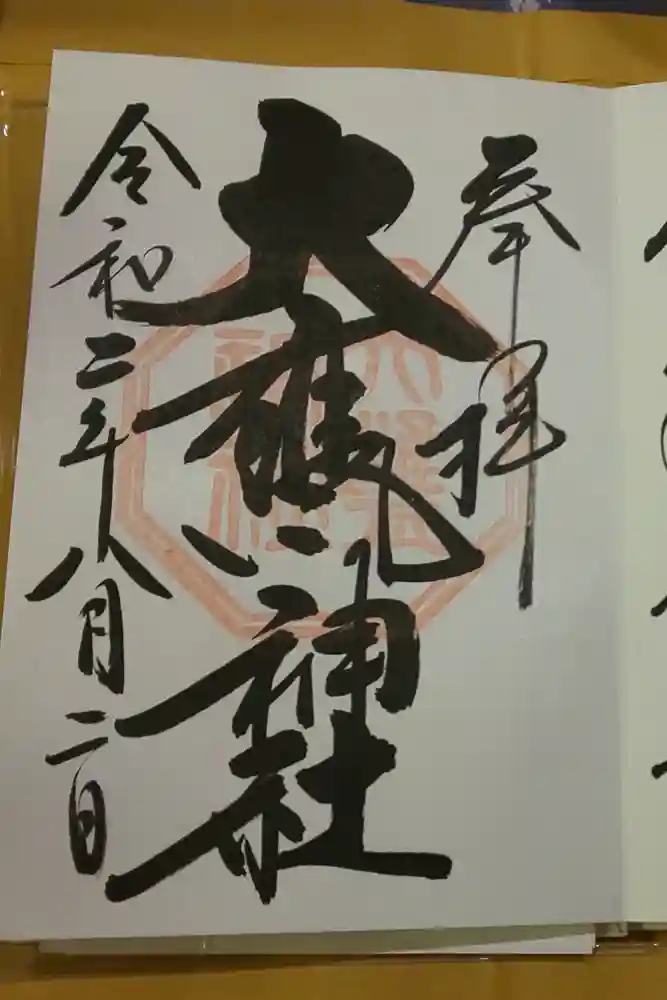 奉拝
大 神社
令和二年八月二日